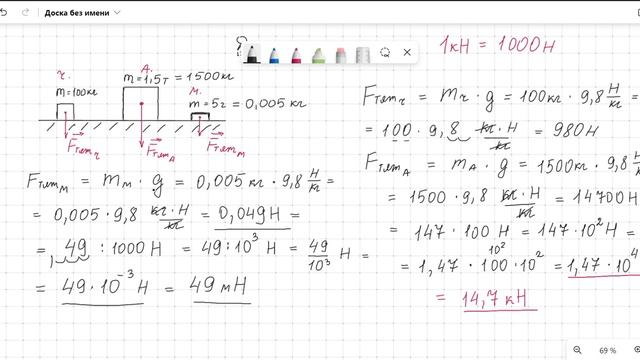 Доска без имени
1кН = 1000Н
ч.
m=100кг
А.
m=1,5т = 1500кг
М.
m=5г = 0,005 кг
Fтяжч
Fтяжд
Fтяжм
Fтяжч = mч · g = 100кг · 9,8 Н/кг =
= 100 · 9,8 кг·Н/кг = 980Н
Fтяжд = mд · g = 1500кг · 9,8 Н/кг
= 1500 · 9,8 кг·Н/кг = 14700Н
= 147 · 100 Н = 147·10² Н =
10²
= 1,47 · 100 · 10² = 1,47 · 10⁴
= 14,7 кН
Fтяжм = mм · g = 0,005кг · 9,8 Н/кг =
= 0,005 · 9,8 кг·Н/кг = 0,049Н =
= , 49 : 1000 Н = 49 : 10³ Н = 49/10³ Н =
= 49·10⁻³ Н = 49 мН
69 %